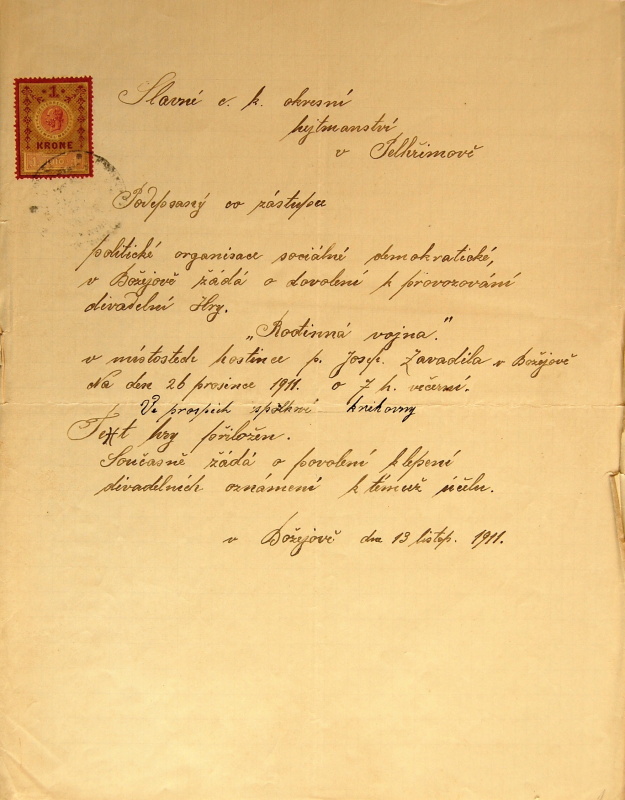 1
KRONE
Slavné c. k. okresní
hejtmanství
v Pelhřimově
Podepsaný co zástupce
politické organisace sociálně demokratické,
v Božejově žádá o dovolení k provozování
divadelní Hry.
„Rodinná vojna."
v místostech hostince p. Josef. Zavadila v Božejově
Na den 26 prosince 1911. o 7 h. večerní.
Ve prospěch spolkní knihovny
Text hry přiložen.
Současně žádá o povolení k lepení
divadelních oznámení k témuž účelu.
v Božejově dne 13 listop. 1911.